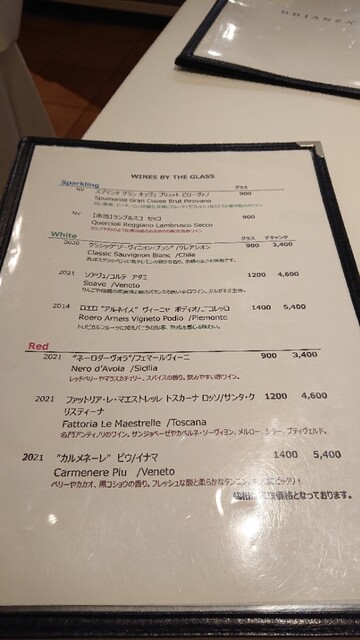 BRIANZA
WINES BY THE GLASS
Sparkling
グラス
NV スプマンテ グラン キュヴェ ブリュット ピローヴァノ 900
Spumante Gran Cuvee Brut Pirovano
NV 【赤泡】ランブルスコ セッコ 900
Quercioli Reggiano Lambrusco Secco
White グラス デキャンタ
2020 クラシック"ソーヴィニョン・ブラン"/クレアシオン 900 3,400
Classic Sauvignon Blanc /Chile
2021 ソアヴェ/コルテ アダミ 1200 4,600
Soave /Veneto
2014 ロエロ "アルネイス" ヴィーニャ ポディオ/ニコレッロ 1400 5,400
Roero Arneis Vigneto Podio /Piemonte
トロピカルフルーツに加えバニラの印象、熟成を感じる味わい。
Red
2021 "ネーロダーヴォラ"/フェマールヴィーニ 900 3,400
Nero d'Avola /Sicilia
レッドベリーやマラスカチェリー、スパイスの香り。飲みやすい赤ワイン。
2021 ファットリア・レ・マエストレッレ トスカーナ ロッソ/サンタ・ク 1200 4,600
リスティーナ
Fattoria Le Maestrelle /Toscana
名門アンティノリのワイン。サンジョベーゼやカベルネ・ソーヴィヨン、メルロー、シラー、プティヴェルド。
2021 "カルメネーレ" ピウ/イナマ 1400 5,400
Carmenere Piu /Veneto
ベリーやカカオ、黒コショウの香り。フレッシュな酸と柔らかなタンニン。
価格となっております。